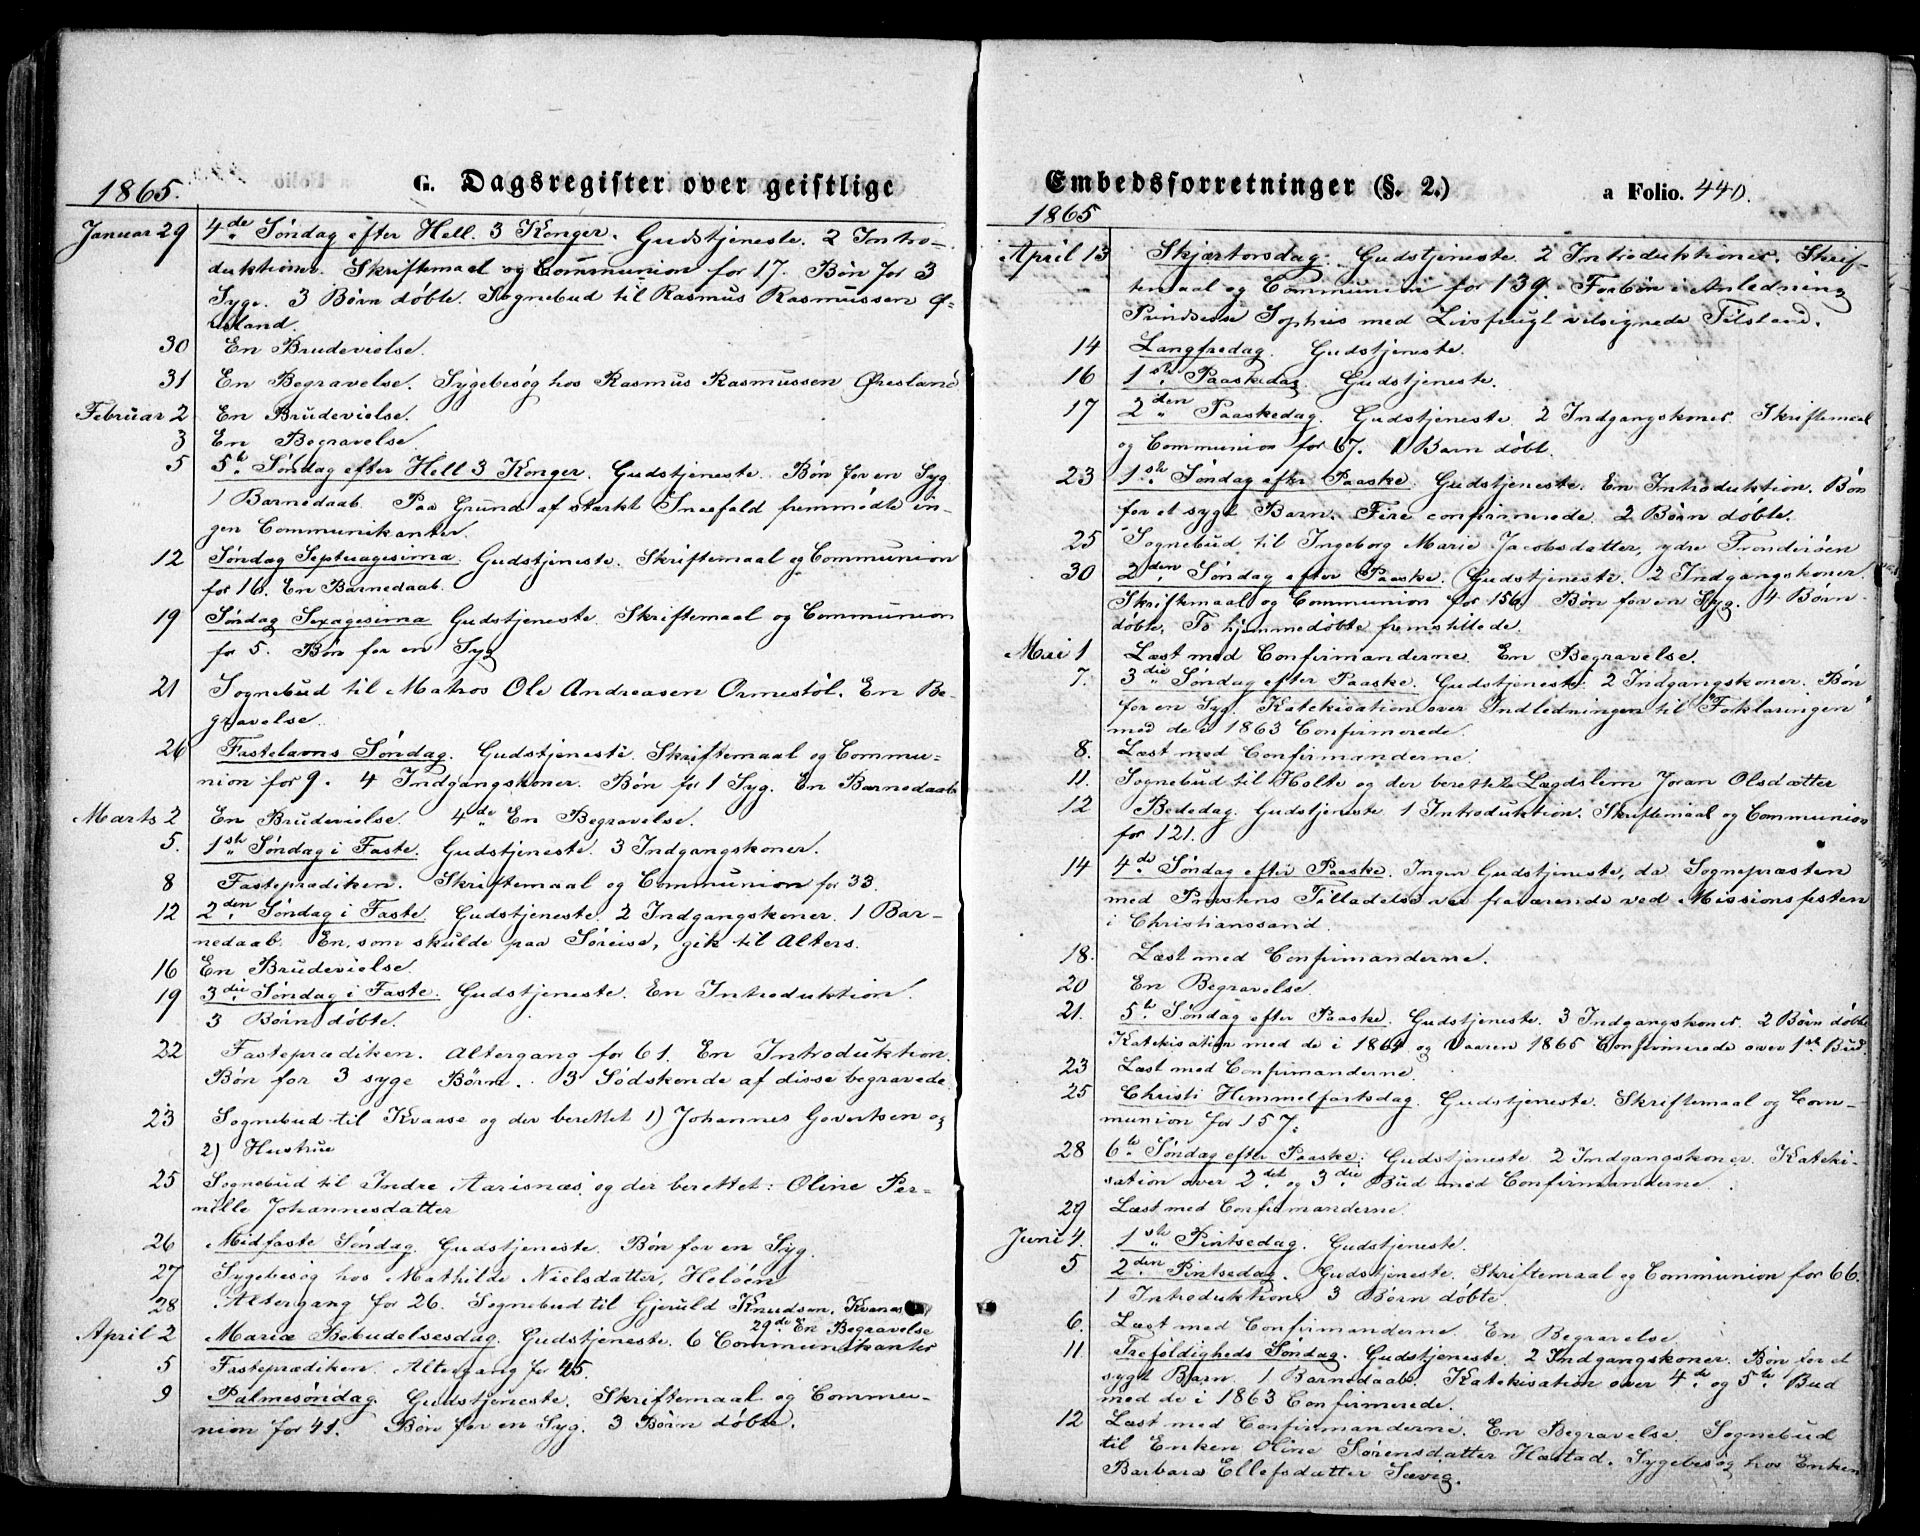 G. Dagsregister over geistlige
1865.
Januar 29 4de Søndag efter Hell. 3 Konger. Gudstjeneste. 2 Intro-
duktioner. Skriftemaal og Communion for 17. Bøn for 3
Syge. 3 Børn døbte. Sognebud til Rasmus Rasmussen Ø-
resland.
30 En Brudevielse.
31 En Begravelse. Sygebesøg hos Rasmus Rasmussen Øresland
Februar 2 En Brudevielse.
3 En Begravelse.
5 5te Søndag efter Hell 3 Konger. Gudstjeneste. Bøn for en Syg
1 Barnedaab. Paa Grund af stærkt Sneefald fremmødte in-
gen Communikanter.
12 Søndag Septuagesima. Gudstjeneste. Skriftemaal og Communion
for 16. En Barnedaab.
19 Søndag Sexagesima Gudstjeneste. Skriftemaal og Communion
for 5. Bøn for en Syg
21 Sognebud til Matros Ole Andreasen Ormestøl. En Be-
gravelse.
26 Fastelavns Søndag. Gudstjeneste. Skriftemaal og Commu-
nion for 9. 4 Indgangskoner. Bøn for 1 Syg. En Barnedaab
Marts 2 En Brudevielse. 4de En Begravelse.
5. 1ste Søndag i Faste. Gudstjeneste. 3 Indgangskoner.
8 Fasteprædiken. Skriftemaal og Communion for 33.
12 2den Søndag i Faste. Gudstjeneste. 2 Indgangskoner. 1 Bar-
nedaab. En, som skulde paa Søreise, gik til Alters.
16 En Brudevielse.
19 3die Søndag i Faste. Gudstjeneste. En Introduktion.
3 Børn døbte.
22 Fasteprædiken. Altergang for 61. En Introduktion.
Bøn for 3 syge Børn. 3 Sødskende af disse begravede.
23 Sognebud til Kvaase og der berettet 1) Johannes Govertsen og
2) Hustrue
25 Sognebud til Indre Aarisnæs, og der berettet: Oline Per-
nille Johannesdatter
26 Midfaste Søndag. Gudstjeneste. Bøn for en Syg.
27 Sygebesøg hos Mathilde Nielsdatter, Heløen
28 Altergang for 26. Sognebud til Gjeruld Knudsen,
29de En Begravelse
April 2 Mariæ Bebudelsesdag. Gudstjeneste. 6 Communikanter
5 Fasteprædiken. Altergang for 45.
9 Palmesøndag. Gudstjeneste. Skriftemaal og Commu-
nion for 41. Bøn for en Syg. 3 Børn døbte.
Embedsforretninger (§. 2.) a Folio. 440.
1865
April 13 Skjærtorsdag. Gudstjeneste. 2 Introduktioner. Skrif-
temaal og Communion for 139. Forbøn i Anledning
Prindsesse Sophies med Livsfrugt velsignede Tilstand.
14 Langfredag. Gudstjeneste.
16 1ste Paaskedag. Gudstjeneste.
17 2den Paaskedag. Gudstjeneste. 2 Indgangskoner. Skriftemaal
og Communion for 67. 1 Barn døbt.
23 1ste Søndag efter Paaske. Gudstjeneste. En Introduktion. Bøn
for et sygt Barn. Fire confirmerede. 2 Børn døbte.
25 Sognebud til Ingeborg Marie Jacobsdatter, ydre
30 2den Søndag efter Paaske. Gudstjeneste. 2 Indgangskoner.
Skriftemaal og Communion for 156. Bøn for en Syg. 4 Børn
døbte. To hjemmedøbte fremstillede.
Mai 1 Læst med Confirmanderne. En Begravelse.
7. 3die Søndag efter Paaske. Gudstjeneste. 2 Indgangskoner. Bøn
for en Syg. Katekisation over Indledningen til "Forklaringen"
med de i 1863 Confirmerede.
8. Læst med Confirmanderne.
11. Sognebud til Holte og der berettet Lægdslem Joran Olsdatter
12 Bededag. Gudstjeneste. 1 Introduktion. Skriftemaal og Communion
for 121.
14 4de Søndag efter Paaske. Ingen Gudstjeneste, da Sognepræsten
med Provstens Tilladelse var fraværende ved Missionsfesten
i Christianssand.
18. Læst med Confirmanderne.
20 En Begravelse.
21. 5te Søndag efter Paaske. Gudstjeneste. 3 Indgangskoner. 2 Børn døbte
Katekisation med de i 1864 og Vaaren 1865 Confirmerede over 1ste Bud.
23 Læst med Confirmanderne.
25 Christi Himmelfartsdag. Gudstjeneste. Skriftemaal og Com-
munion for 157.
28 6te Søndag efter Paaske. Gudstjeneste. 2 Indgangskoner. Kateki-
sation over 2det og 3die Bud med Confirmanderne.
29 Læst med Confirmanderne.
Juni 4. 1ste Pintsedag. Gudstjeneste.
5 2den Pintsedag. Gudstjeneste. Skriftemaal og Communion for 66.
1 Introduktion. 3 Børn døbte.
6. Læst med Confirmanderne. En Begravelse.
11. Trefoldigheds Søndag. Gudstjeneste. 2 Indgangskoner. Bøn for et
sygt Barn. 1 Barnedaab. Katekisation over 4de og 5te Bud
med de i 1863 Confirmerede.
12 Læst med Confirmanderne. En Begravelse. Sognebud
til Enken Oline Sørensdatter Hæstad. Sygebesøg hos Enken
Barbara Ellefsdatter Sæveg.